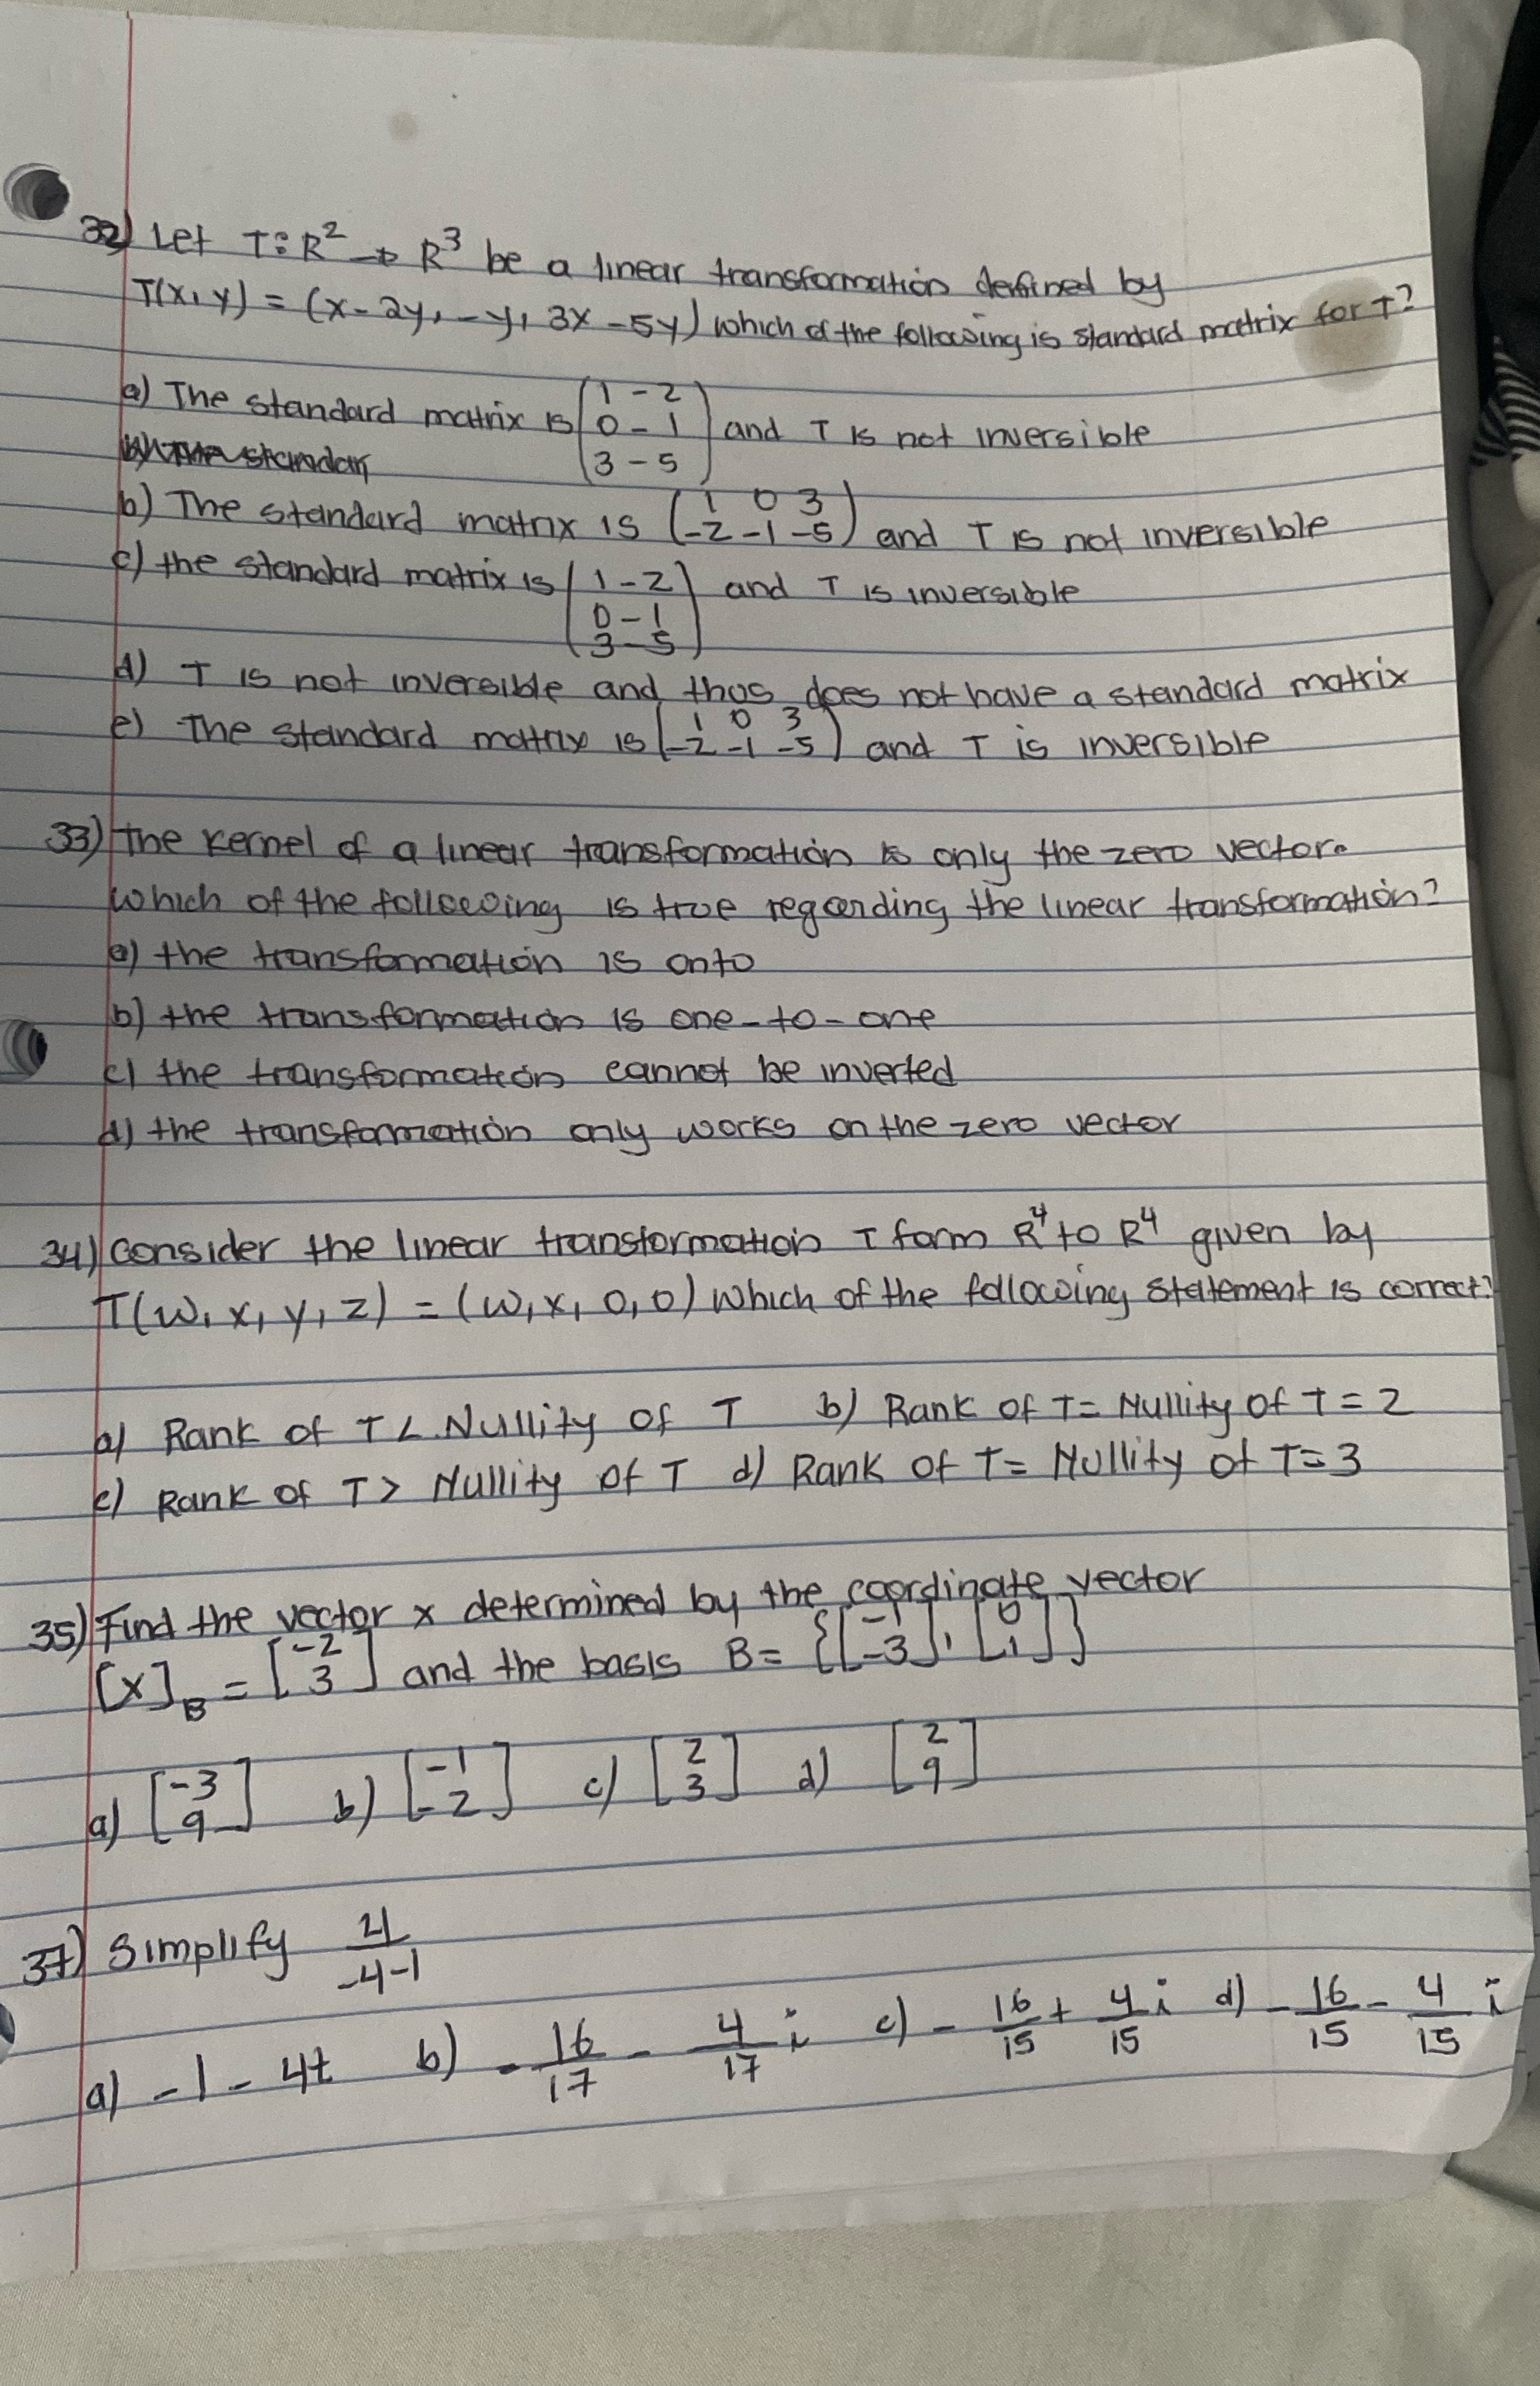 32) Let T: R² → R³ be a linear transformation defined by
T(x, y) = (x - 2y, -y, 3x - 5y) which of the following is standard matrix for T?
a) The standard matrix is (1 -2
0 -1
3 -5) and T is not inversible
b) The standar
b) The standard matrix is (1 0 3
-2 -1 -5) and T is not inversible
c) the standard matrix is (1 -2
0 -1
3 -5) and T is inversible
d) T is not inversible and thus does not have a standard matrix
e) The standard matrix is (1 0 3
-2 -1 -5) and T is inversible
33) The kernel of a linear transformation is only the zero vector.
Which of the following is true regarding the linear transformation?
a) the transformation is onto
b) the transformation is one-to-one
c) the transformation cannot be inverted
d) the transformation only works on the zero vector
34) Consider the linear transformation T form R⁴ to R⁴ given by
T(w, x, y, z) = (w, x, 0, 0) Which of the following statement is correct?
a) Rank of T < Nullity of T b) Rank of T = Nullity of T = 2
c) Rank of T > Nullity of T d) Rank of T = Nullity of T = 3
35) Find the vector x determined by the coordinate vector
[x]B = [-2
3] and the basis B = {[-1
-3], [0
1]}
a) [-3
9] b) [-1
-2] c) [2
3] d) [2
9]
37) Simplify 4/-4-1
a) -1 - 4t b) - 16/17 - 4/17 i c) - 16/15 + 4/15 i d) - 16/15 - 4/15 i